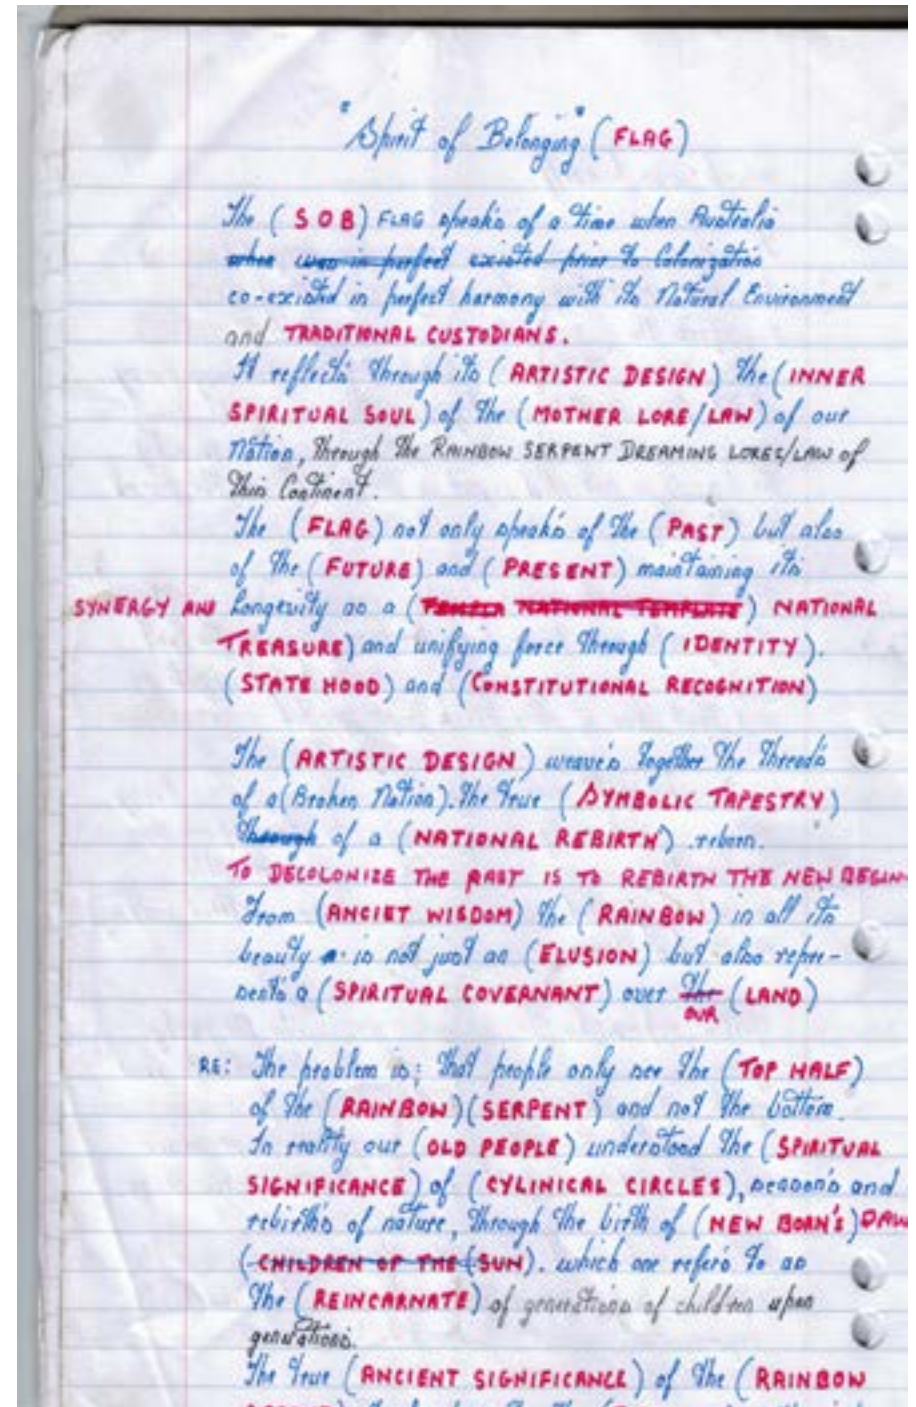 "Spirit of Belonging" (FLAG)
The (SOB) FLAG speak's of a time when Australia
when was in perfect existed prior to Colonization
co-existed in perfect harmony with its Natural Environment
and TRADITIONAL CUSTODIANS.
It reflect's through its (ARTISTIC DESIGN) the (INNER
SPIRITUAL SOUL) of the (MOTHER LORE/LAW) of our
Nation, through the RAINBOW SERPENT DREAMING LORES/LAW of
this Continent.
The (FLAG) not only speak's of the (PAST) but also
of the (FUTURE) and (PRESENT) maintaining its
SYNERGY AND Longevity as a (NATIONAL TEMPLATE) NATIONAL
TREASURE) and unifying force through (IDENTITY).
(STATE HOOD) and (CONSTITUTIONAL RECOGNITION)
The (ARTISTIC DESIGN) weave's together the thread's
of a (Broken Nation). The true (SYMBOLIC TAPESTRY)
through of a (NATIONAL REBIRTH) .reborn.
TO DECOLONIZE THE PAST IS TO REBIRTH THE NEW BEGIN
From (ANCIET WISDOM) the (RAINBOW) in all its
beauty is not just an (ELUSION) but also repre-
sent's a (SPIRITUAL COVERNANT) over the OUR (LAND)
RE: The problem is; that people only see the (TOP HALF)
of the (RAINBOW) (SERPENT) and not the bottom.
In reality our (OLD PEOPLE) understood the (SPIRITUAL
SIGNIFICANCE) of (CYLINICAL CIRCLES), season's and
rebirth's of nature, through the birth of (NEW BORN'S) DAW
(CHILDREN OF THE (SUN). which one refer's to as
the (REINCARNATE) of generations of children upon
generations.
The true (ANCIENT SIGNIFICANCE) of the (RAINBOW